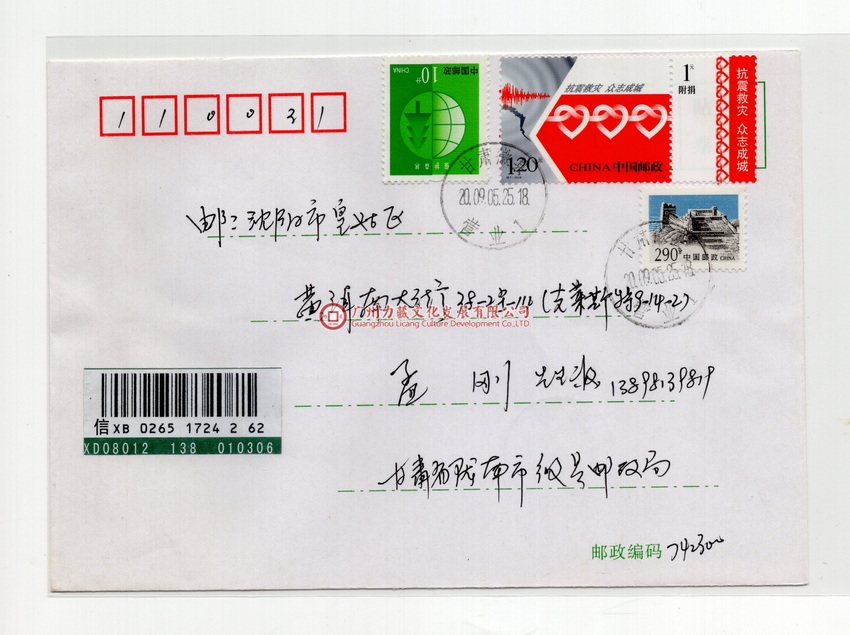 中国邮政 CHINA
10分
抗震救灾 众志成城
1.20元
CHINA 中国邮政
1元
附捐
抗震救灾 众志成城
110031
甘肃
20.09.05.25.18.
营业1
290分 中国邮政 CHINA
甘肃
20.09.05.25.18
营业
沈阳市皇姑区
黄河南大街 38-2号-112 (克莱斯特9-14-2)
广州力藏文化发展有限公司
Guangzhou Licang Culture Development Co.,LTD
孟 刚 先生收 13898139819
信 XB 0265 1724 2 62
XD08012 138 010306
甘肃省陇南市 邮政局
邮政编码 742300